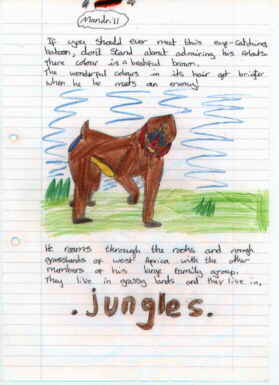 Mandrill
If you should ever meet this eye-catching
baboon, don't stand about admiring his
there colour is a beatiful brown.
The wonderful colours in its hair get briefer
when he he meets an enemy
He roams through the rocks and rough
grasslands of west Africa with the other
members of his large family group.
They live in grassy lands and they live in,
.jungles.